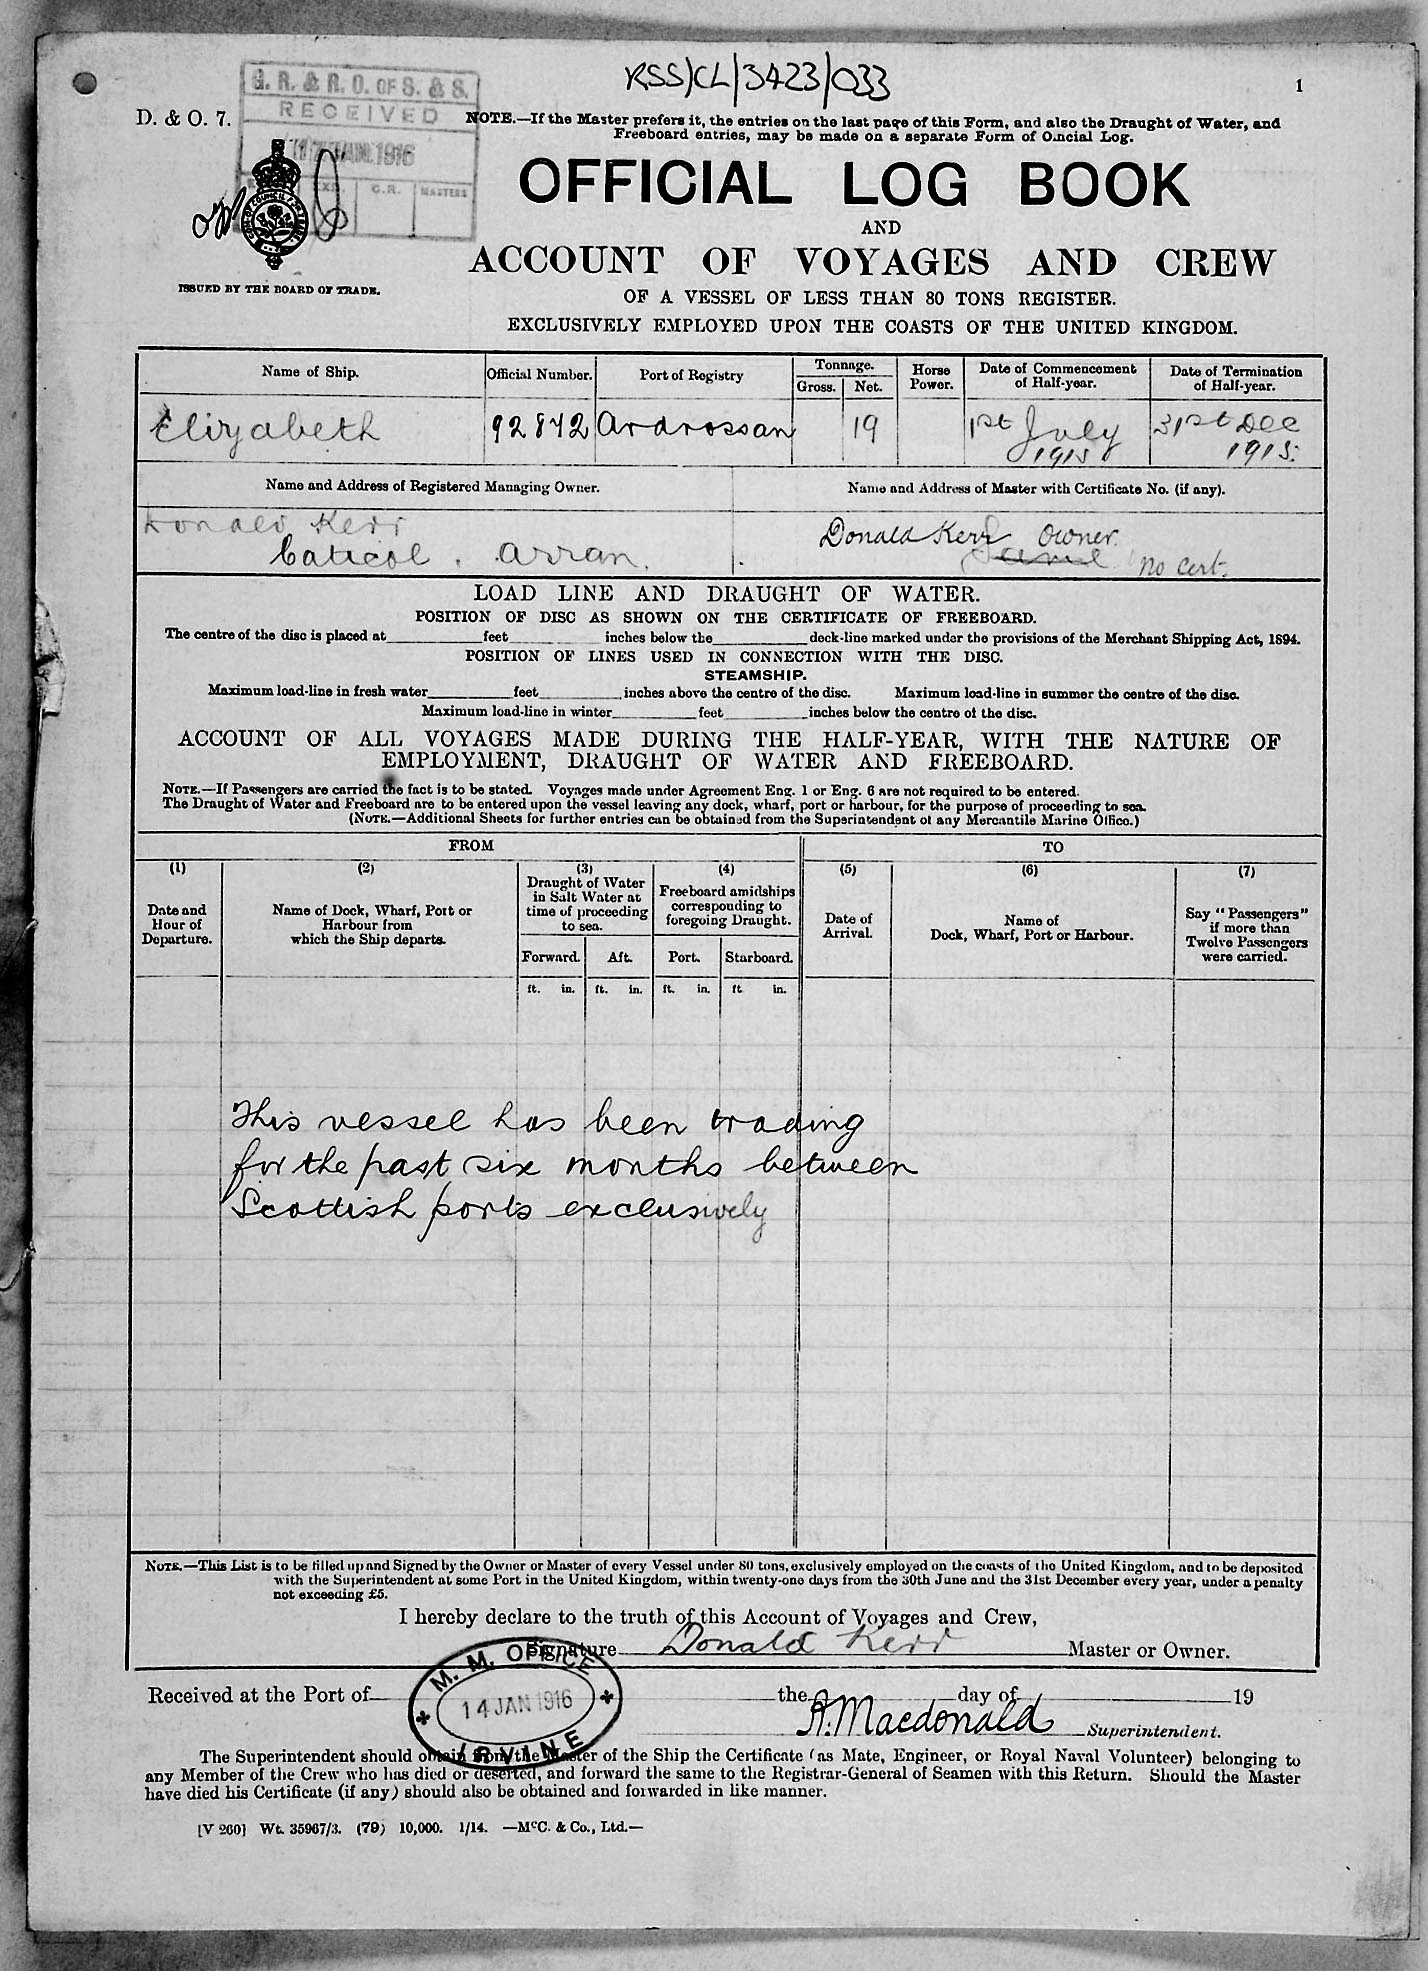 RSS/CL/3423/033
1
G. R. & R. O. OF S. & S.
RECEIVED
17 JAN. 1916
C.R. MASTERS
D. & O. 7.
NOTE.—If the Master prefers it, the entries on the last page of this Form, and also the Draught of Water, and
Freeboard entries, may be made on a separate Form of Official Log.
OFFICIAL LOG BOOK
AND
ACCOUNT OF VOYAGES AND CREW
ISSUED BY THE BOARD OF TRADE.
OF A VESSEL OF LESS THAN 80 TONS REGISTER.
EXCLUSIVELY EMPLOYED UPON THE COASTS OF THE UNITED KINGDOM.
Name of Ship. Official Number. Port of Registry Tonnage. Gross. Net. Horse Power. Date of Commencement of Half-year. Date of Termination of Half-year.
Elizabeth 92842 Ardrossan 19 1st July 1915 31st Dec 1915.
Name and Address of Registered Managing Owner. Name and Address of Master with Certificate No. (if any).
Donald Kerr Donald Kerr Owner.
Caticol. Arran. Same No Cert.
LOAD LINE AND DRAUGHT OF WATER.
POSITION OF DISC AS SHOWN ON THE CERTIFICATE OF FREEBOARD.
The centre of the disc is placed at feet inches below the deck-line marked under the provisions of the Merchant Shipping Act, 1894.
POSITION OF LINES USED IN CONNECTION WITH THE DISC.
STEAMSHIP.
Maximum load-line in fresh water feet inches above the centre of the disc. Maximum load-line in summer the centre of the disc.
Maximum load-line in winter feet inches below the centre of the disc.
ACCOUNT OF ALL VOYAGES MADE DURING THE HALF-YEAR, WITH THE NATURE OF
EMPLOYMENT, DRAUGHT OF WATER AND FREEBOARD.
NOTE.—If Passengers are carried the fact is to be stated. Voyages made under Agreement Eng. 1 or Eng. 6 are not required to be entered.
The Draught of Water and Freeboard are to be entered upon the vessel leaving any dock, wharf, port or harbour, for the purpose of proceeding to sea.
(NOTE.—Additional Sheets for further entries can be obtained from the Superintendent of any Mercantile Marine Office.)
FROM TO
(1) (2) (3) (4) (5) (6) (7)
Date and Hour of Departure.
Name of Dock, Wharf, Port or Harbour from which the Ship departs.
Draught of Water in Salt Water at time of proceeding to sea.
Freeboard amidships corresponding to foregoing Draught.
Date of Arrival.
Name of Dock, Wharf, Port or Harbour.
Say "Passengers" if more than Twelve Passengers were carried.
Forward. Aft. Port. Starboard.
ft. in. ft. in. ft. in. ft. in.
This vessel has been trading
for the past six months between
Scottish ports exclusively
NOTE.—This List is to be filled up and Signed by the Owner or Master of every Vessel under 80 tons, exclusively employed on the coasts of the United Kingdom, and to be deposited
with the Superintendent at some Port in the United Kingdom, within twenty-one days from the 30th June and the 31st December every year, under a penalty
not exceeding £5.
I hereby declare to the truth of this Account of Voyages and Crew,
Signature Donald Kerr Master or Owner.
M. M. OFFICE
14 JAN 1916
IRVINE
Received at the Port of the day of 19
A. Macdonald Superintendent.
The Superintendent should obtain from the Master of the Ship the Certificate (as Mate, Engineer, or Royal Naval Volunteer) belonging to
any Member of the Crew who has died or deserted, and forward the same to the Registrar-General of Seamen with this Return. Should the Master
have died his Certificate (if any) should also be obtained and forwarded in like manner.
[V 260] Wt. 35967/3. (79) 10,000. 1/14. —McC. & Co., Ltd.—